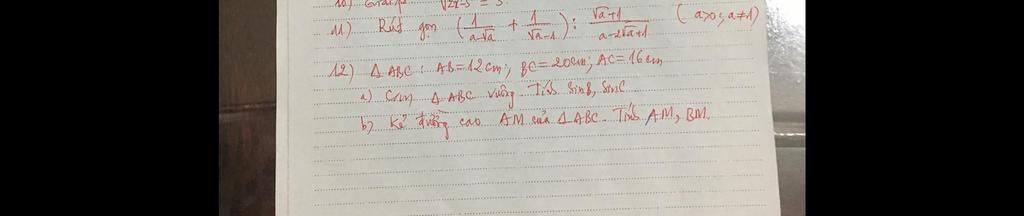 10) Giải pt √2x-3 = 3.
11) Rút gọn (1/(a-√a) + 1/(√a-1)) : (√a+1)/(a-2√a+1) (a>0; a≠1)
12) Δ ABC : AB=12cm; BC=20cm; AC=16cm
a) Cm Δ ABC vuông. Tính SinB, SinC
b) Kẻ đường cao AM của Δ ABC. Tính AM, BM.